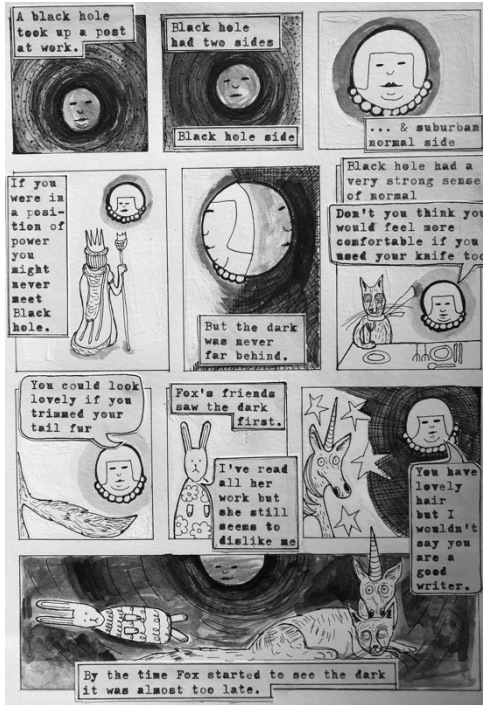 A black hole
took up a post
at work.
Black hole
had two sides
Black hole side
... & suburban
normal side
If you
were in
a posi-
tion of
power
you
might
never
meet
Black
hole.
But the dark
was never
far behind.
Black hole had a
very strong sense
of normal
Don't you think you
would feel more
comfortable if you
used your knife too
You could look
lovely if you
trimmed your
tail fur
Fox's friends
saw the dark
first.
I've read
all her
work but
she still
seems to
dislike me
You have
lovely
hair
but I
wouldn't
say you
are a
good
writer.
By the time Fox started to see the dark
it was almost too late.